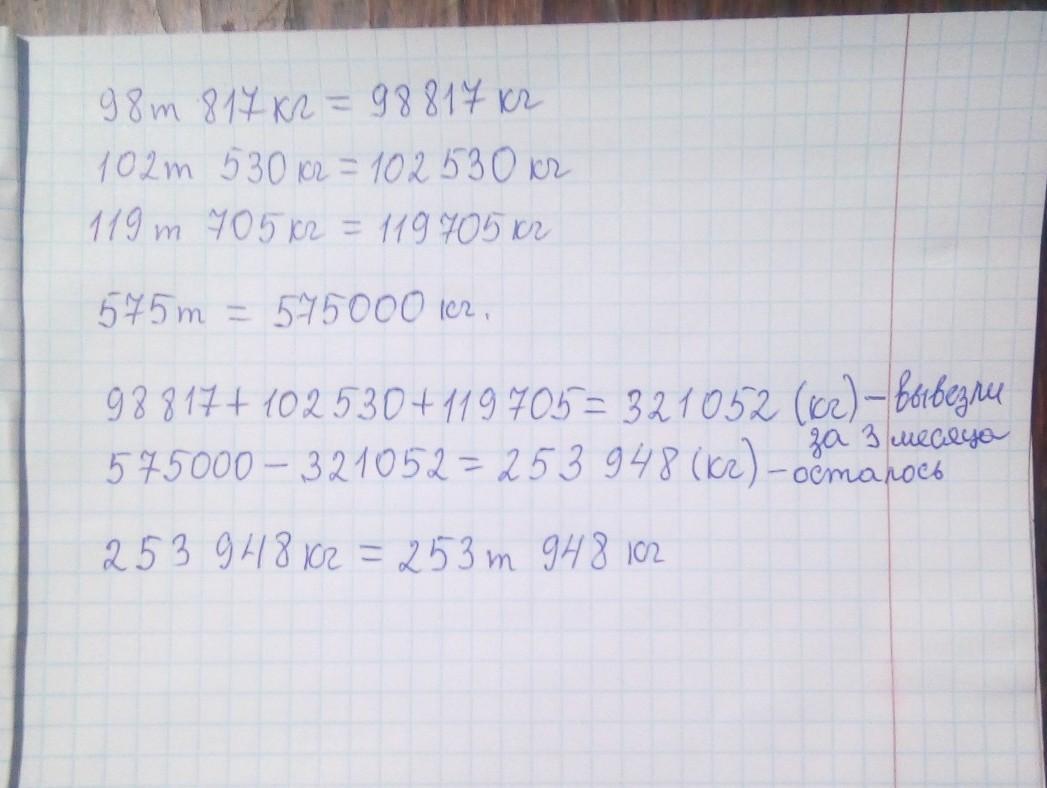 98т 817кг = 98817 кг
102т 530 кг = 102 530 кг
119т 705кг = 119705 кг
575т = 575000 кг.
98 817 + 102 530 + 119 705 = 321052 (кг) – вывезли
за 3 месяца
575000 – 321052 = 253 948 (кг) – осталось
253 948 кг = 253т 948 кг